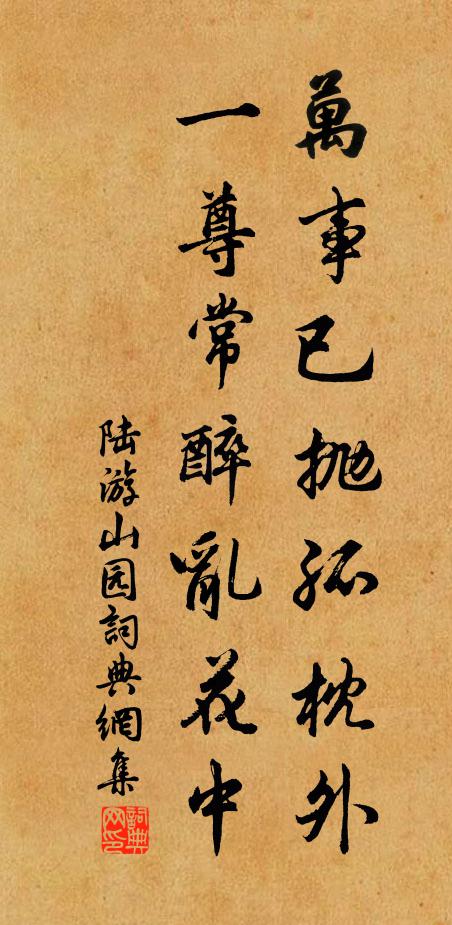 萬事已抛孤枕外
一尊常醉亂花中
陆游山园詞典網集
詞典网印